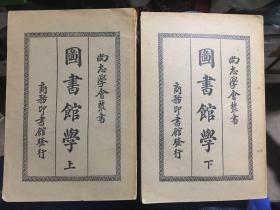 尚志學會叢書
圖書館學 上
商務印書館發行
尚志學會叢書
圖書館學 下
商務印書館發行